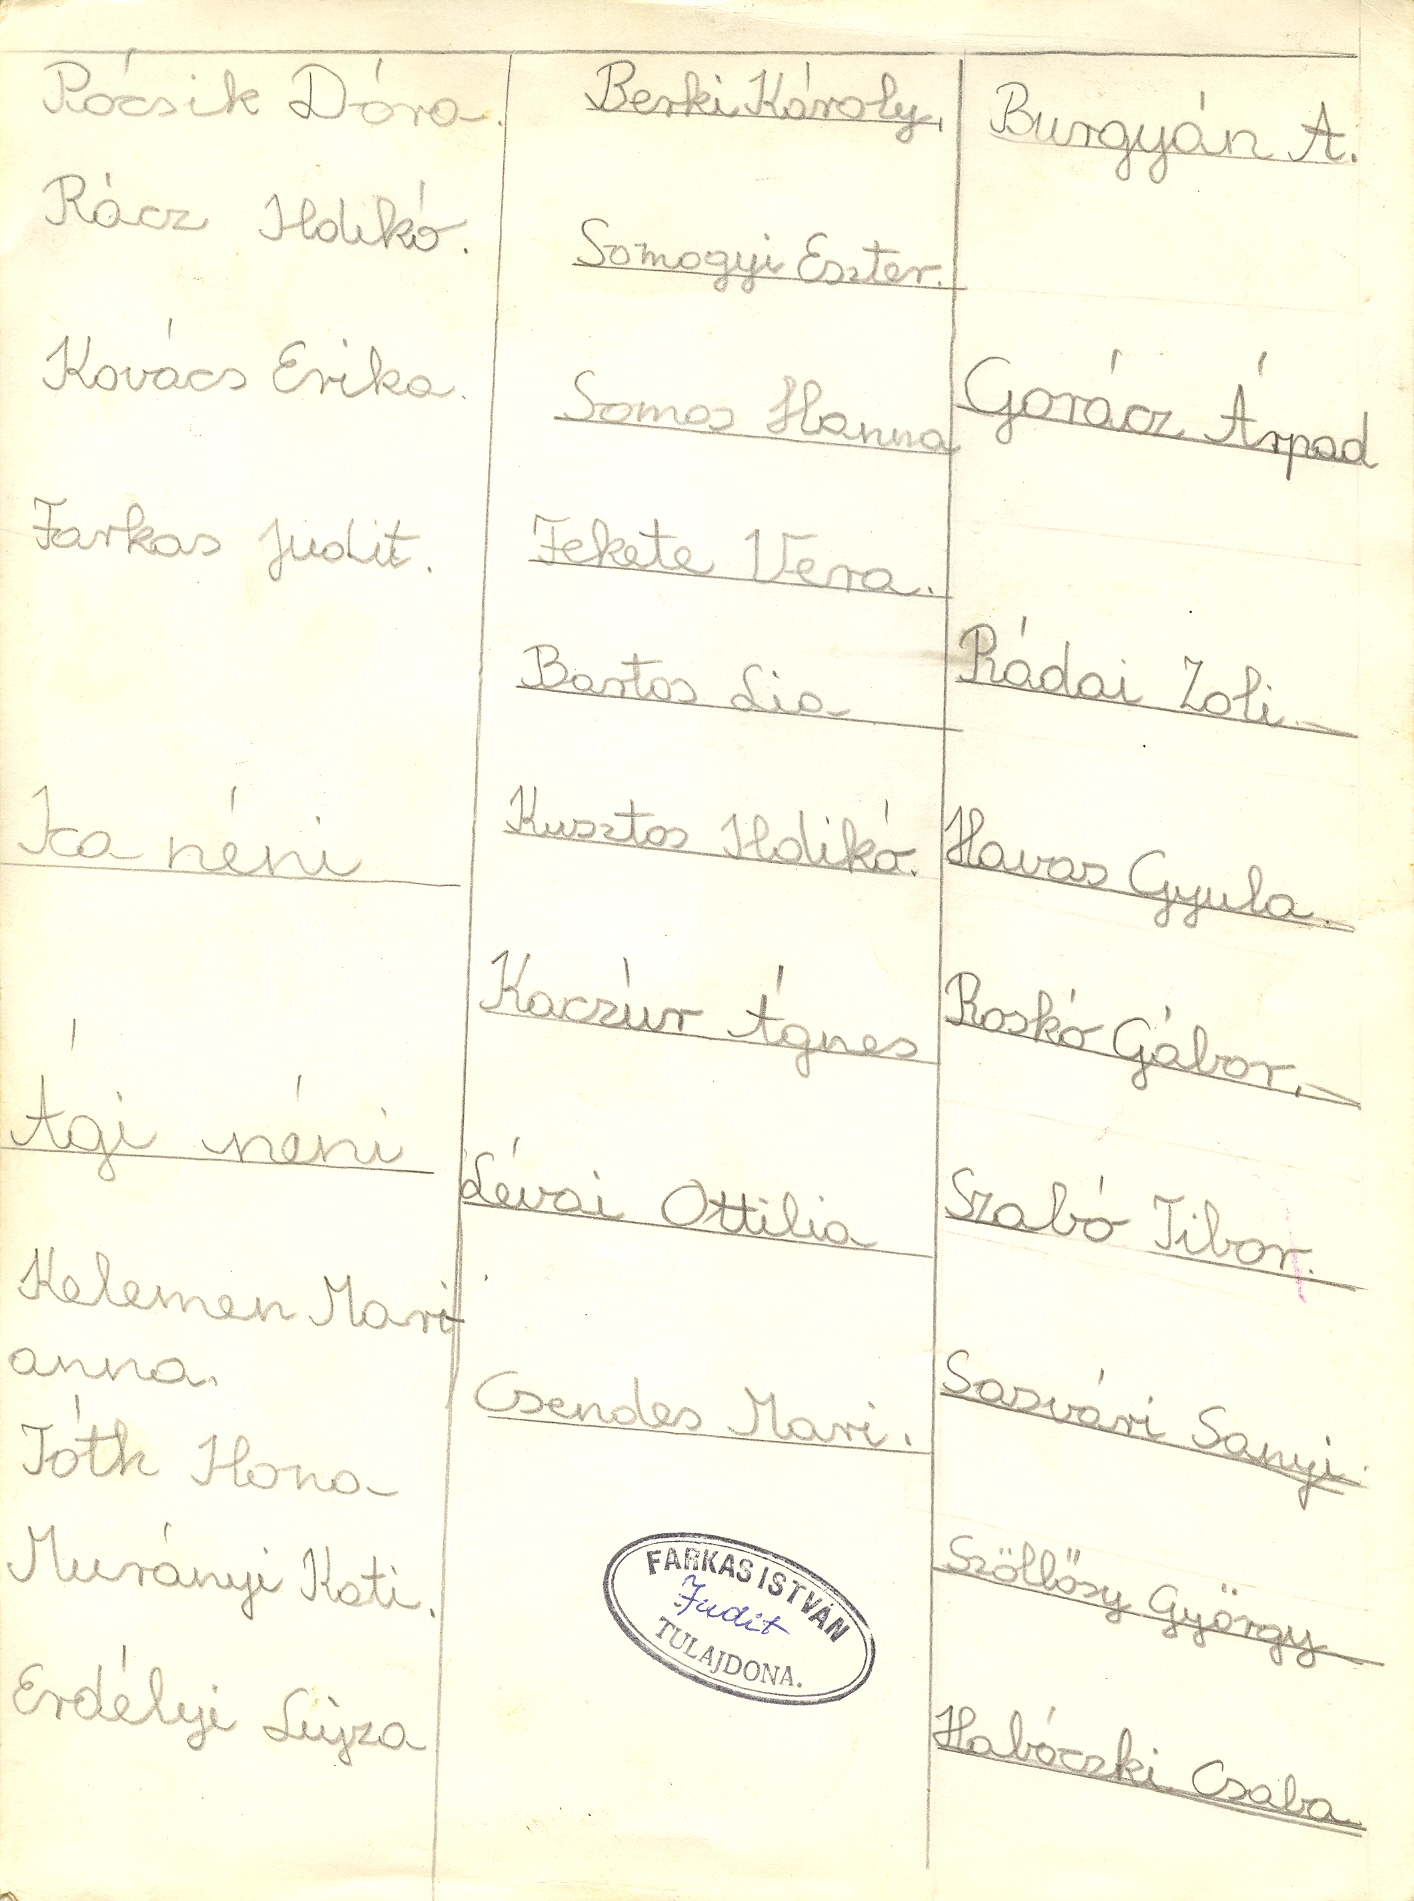 Rócsik Dóra.
Rácz Ildikó.
Kovács Erika.
Farkas Judit.
Ica néni
Ági néni
Kelemen Mari
anna.
Tóth Ilona
Murányi Kati.
Erdélyi Lujza
Berki Károly.
Somogyi Eszter.
Somos Hanna
Fekete Vera.
Bartos Lia
Kusztos Ildikó.
Kaczúr Ágnes
Lévai Ottilia
Csendes Mari.
FARKAS ISTVÁN
Judit
TULAJDONA.
Burgyán A.
Gorácz Árpad
Rádai Zoli.
Havas Gyula.
Roskó Gábor.
Szabó Tibor.
Sasvári Sanyi.
Szöllősy György
Habóczki Csaba